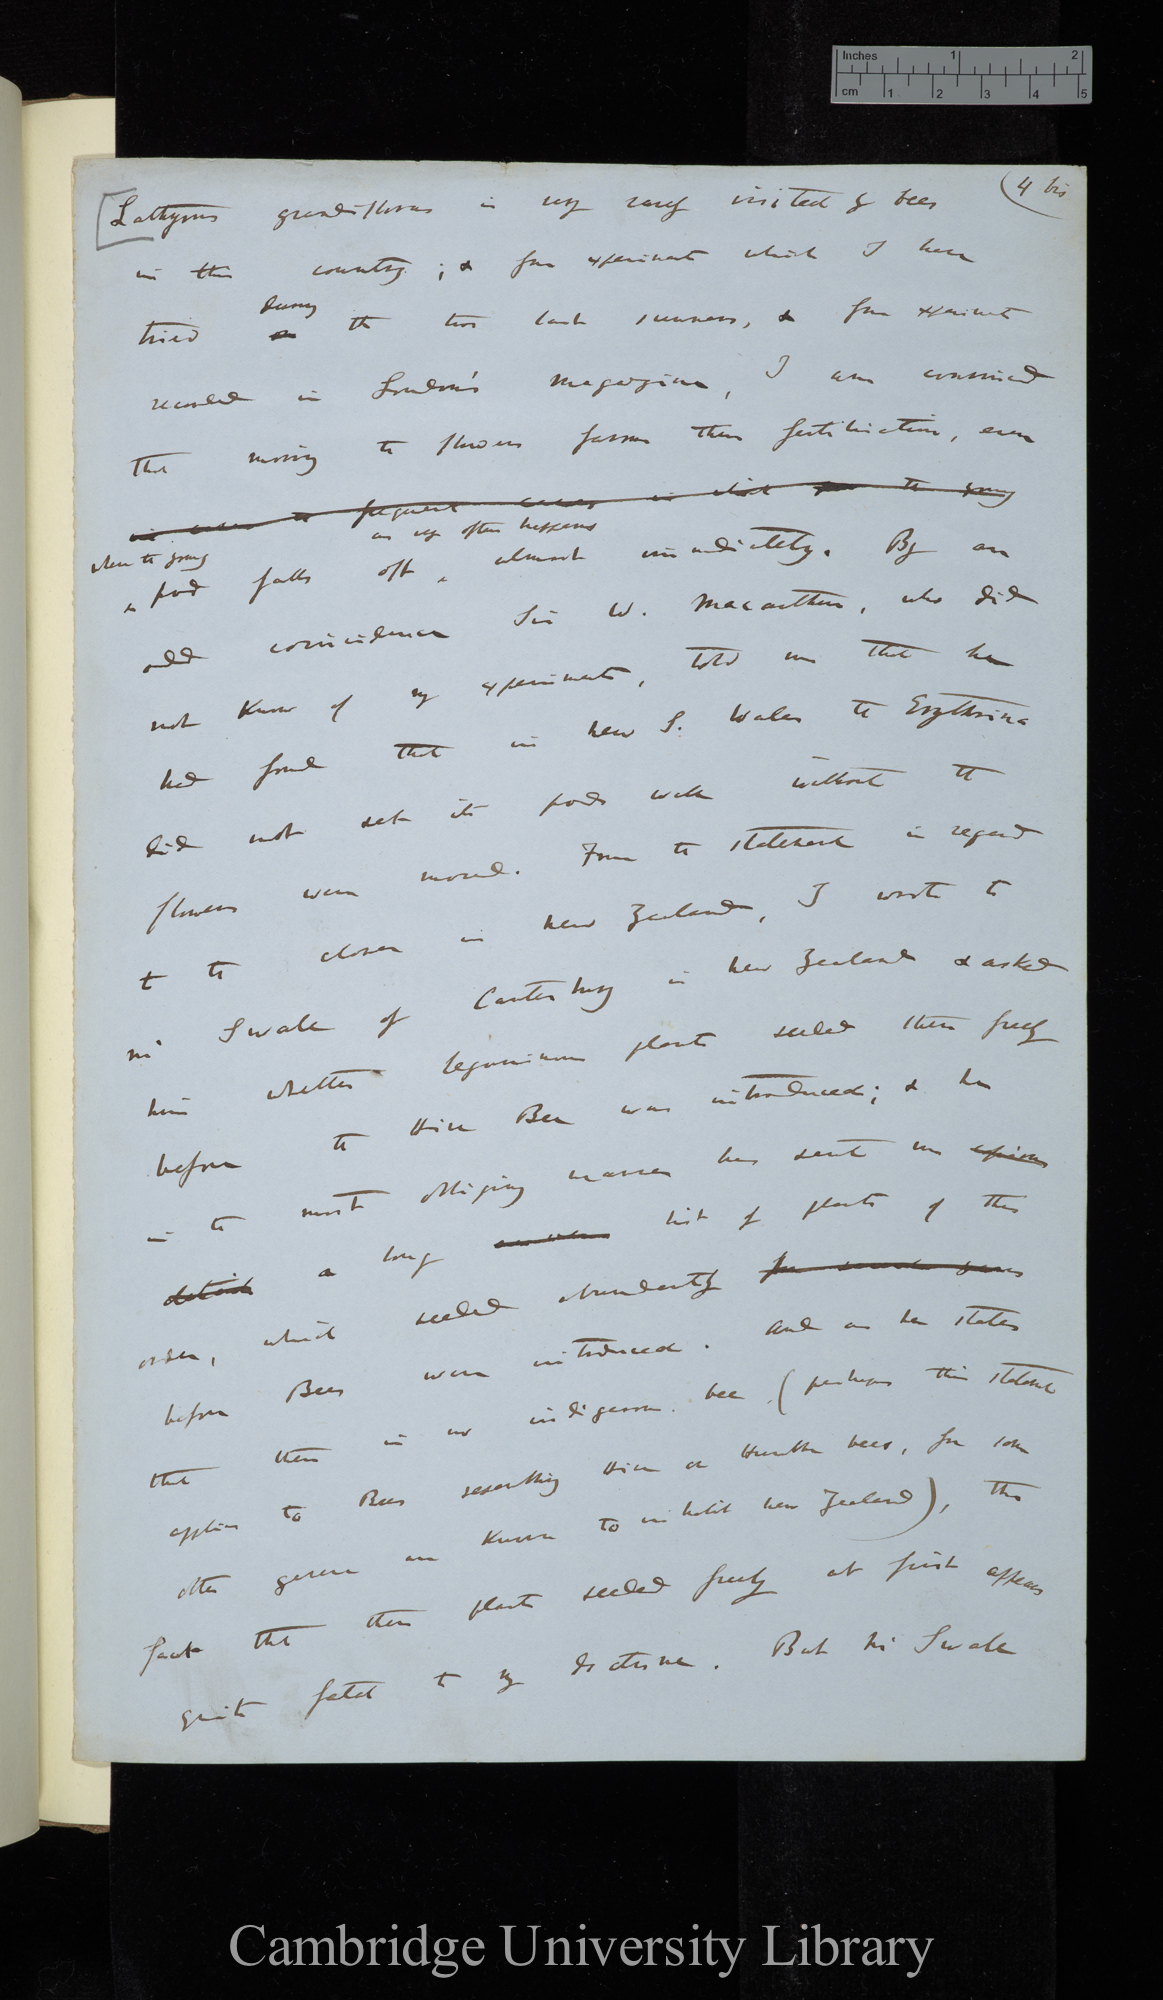 Inches 1 2
cm 1 2 3 4 5
4 bis
[Lathyrus grandiflorus is very rarely visited by bees
in this country; & from experiments which I have
during
tried the two last summers, & from experiments
recorded in Loudon's Magazine, I am convinced
that moving the flowers favours their fertilisation, even
frequent cases in which the young
when the young as very often happens
pod falls off, almost immediately. By an
odd coincidence Sir W. Macarthur, who did
not know of my experiments, told me that he
had found that in New S. Wales the Erythrina
did not set its pods well without the
flowers were moved. From the statement in regard
to the clover in New Zealand, I wrote to
Mr Swale of Canterbury in New Zealand & asked
him whether leguminous plants seeded there freely
before the Hive Bee was introduced; & he
in the most obliging manner has sent me
a long list of plants of this
order, which seeded abundantly for several years
before Bees were introduced. And as he states
that there is no indigenous bee (perhaps this statement
applies to Bees resembling Hive or Humble bees, for some
other genera are known to inhabit New Zealand), the
fact that these plants seeded freely at first appears
quite fatal to my doctrine. But Mr Swale
Cambridge University Library